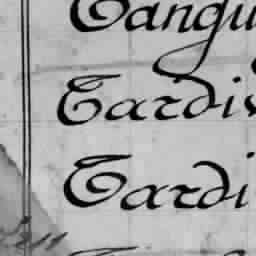 Tangu
Tardiv
Tardi